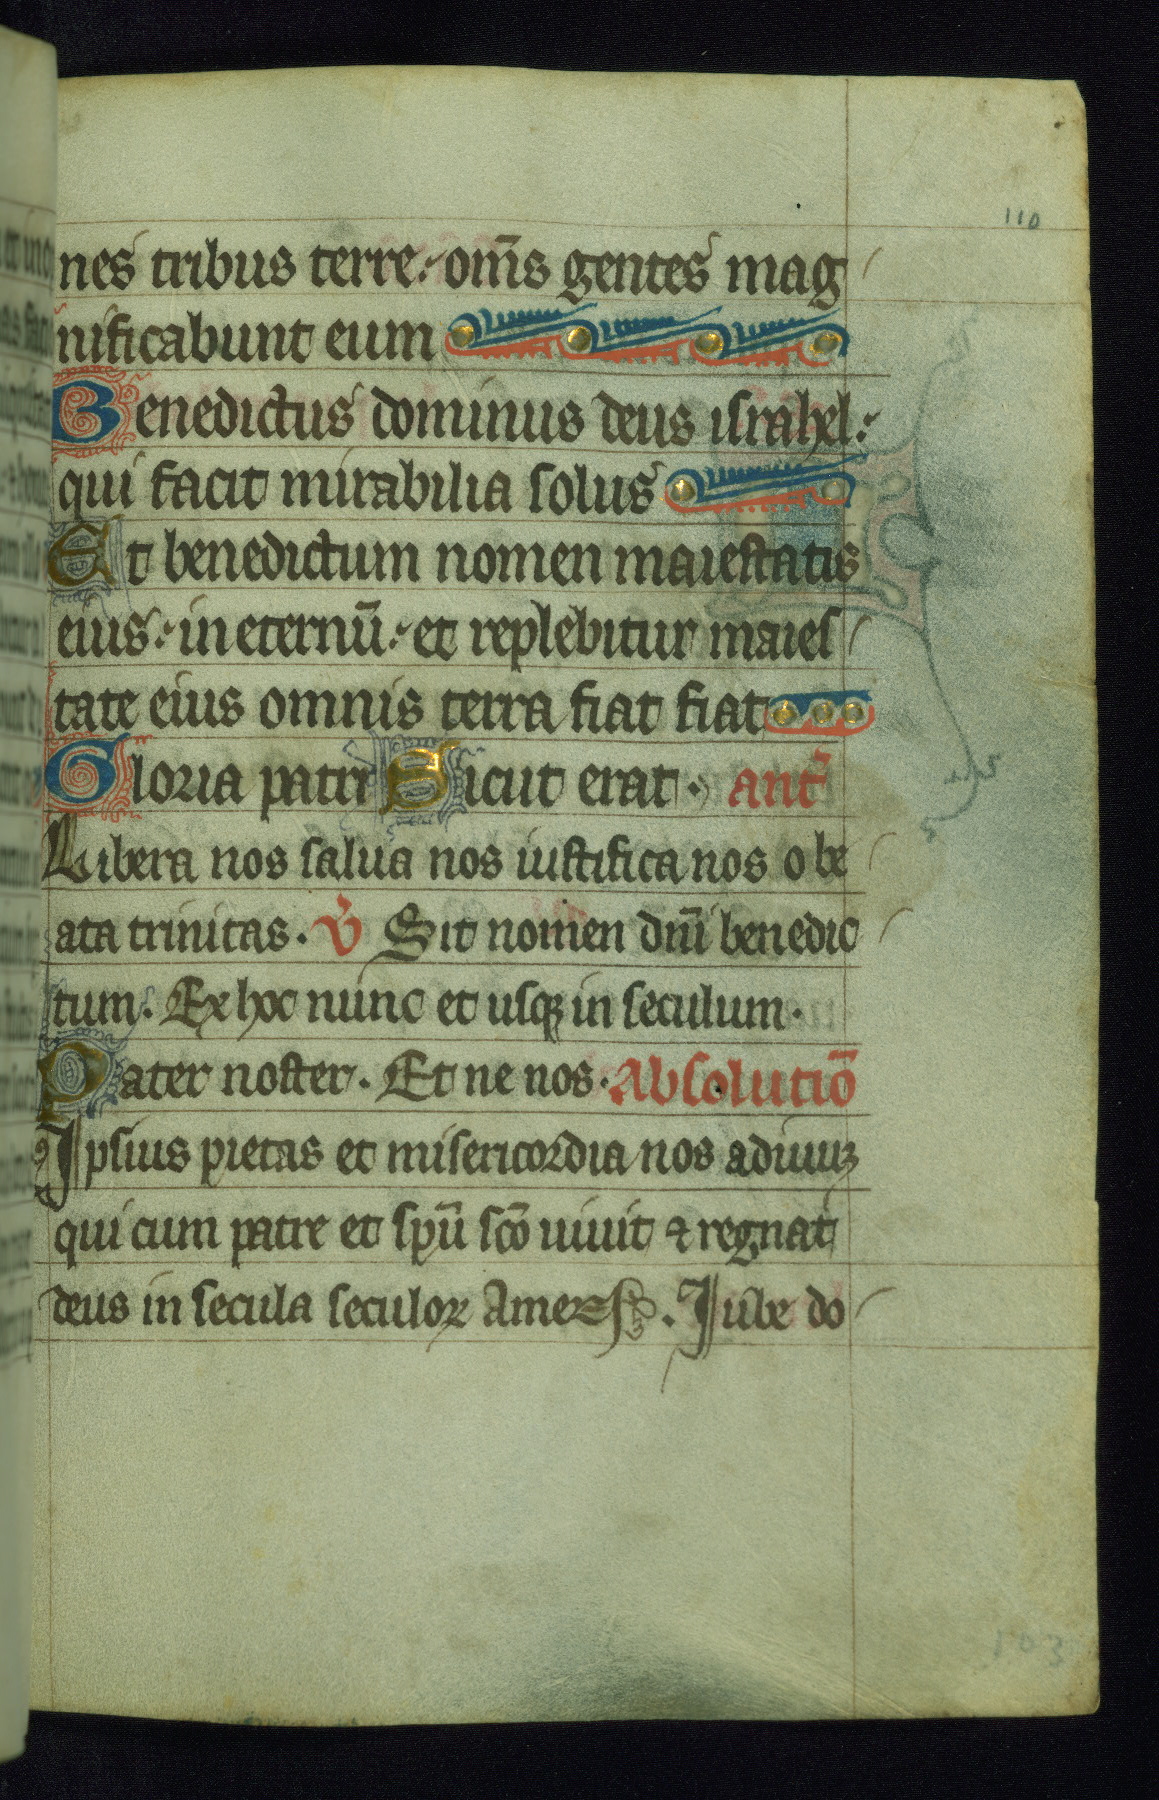 110
nes tribus terre. om̄s gentes mag
nificabunt eum
Benedictus dominus deus israhel.
qui facit mirabilia solus
Et benedictum nomen maiestatis
eius. in eternū. et replebitur maies
tate eius omnis terra fiat fiat
Gloria patri Sicut erat. ant̄
Libera nos salua nos iustifica nos o be
ata trinitas. V̄ Sit nomen dn̄i benedic
tum. Ex hoc nunc et usqꝫ in seculum.
Pater noster. Et ne nos. Absolutiō
Ipsius pietas et misericordia nos adiuuꝫ
qui cum patre et sp̄u sc̄o uiuit ⁊ regnat
deus in secula seculoꝝ Amen. Iube do
103